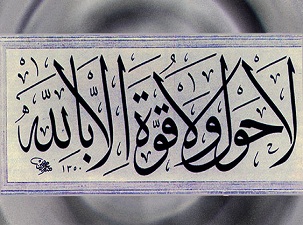 لَا حَوْلَ وَلَا قُوَّةَ إِلَّا بِاللَّهِ
١٣٥٠